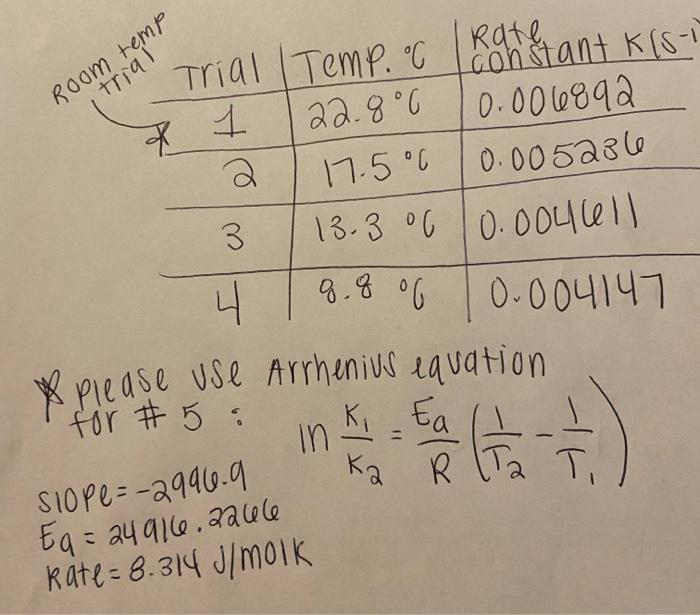 Room temp
trial
Trial Temp. °C Rate constant K(s-1
* 1 22.8°C 0.006892
2 17.5°C 0.005236
3 13.3 °C 0.004611
4 8.8 °C 0.004147
* please use Arrhenius equation
for # 5 :
ln K1/K2 = Ea/R (1/T2 - 1/T1)
slope=-2996.9
Ea= 24916.2266
Rate= 8.314 J/molK